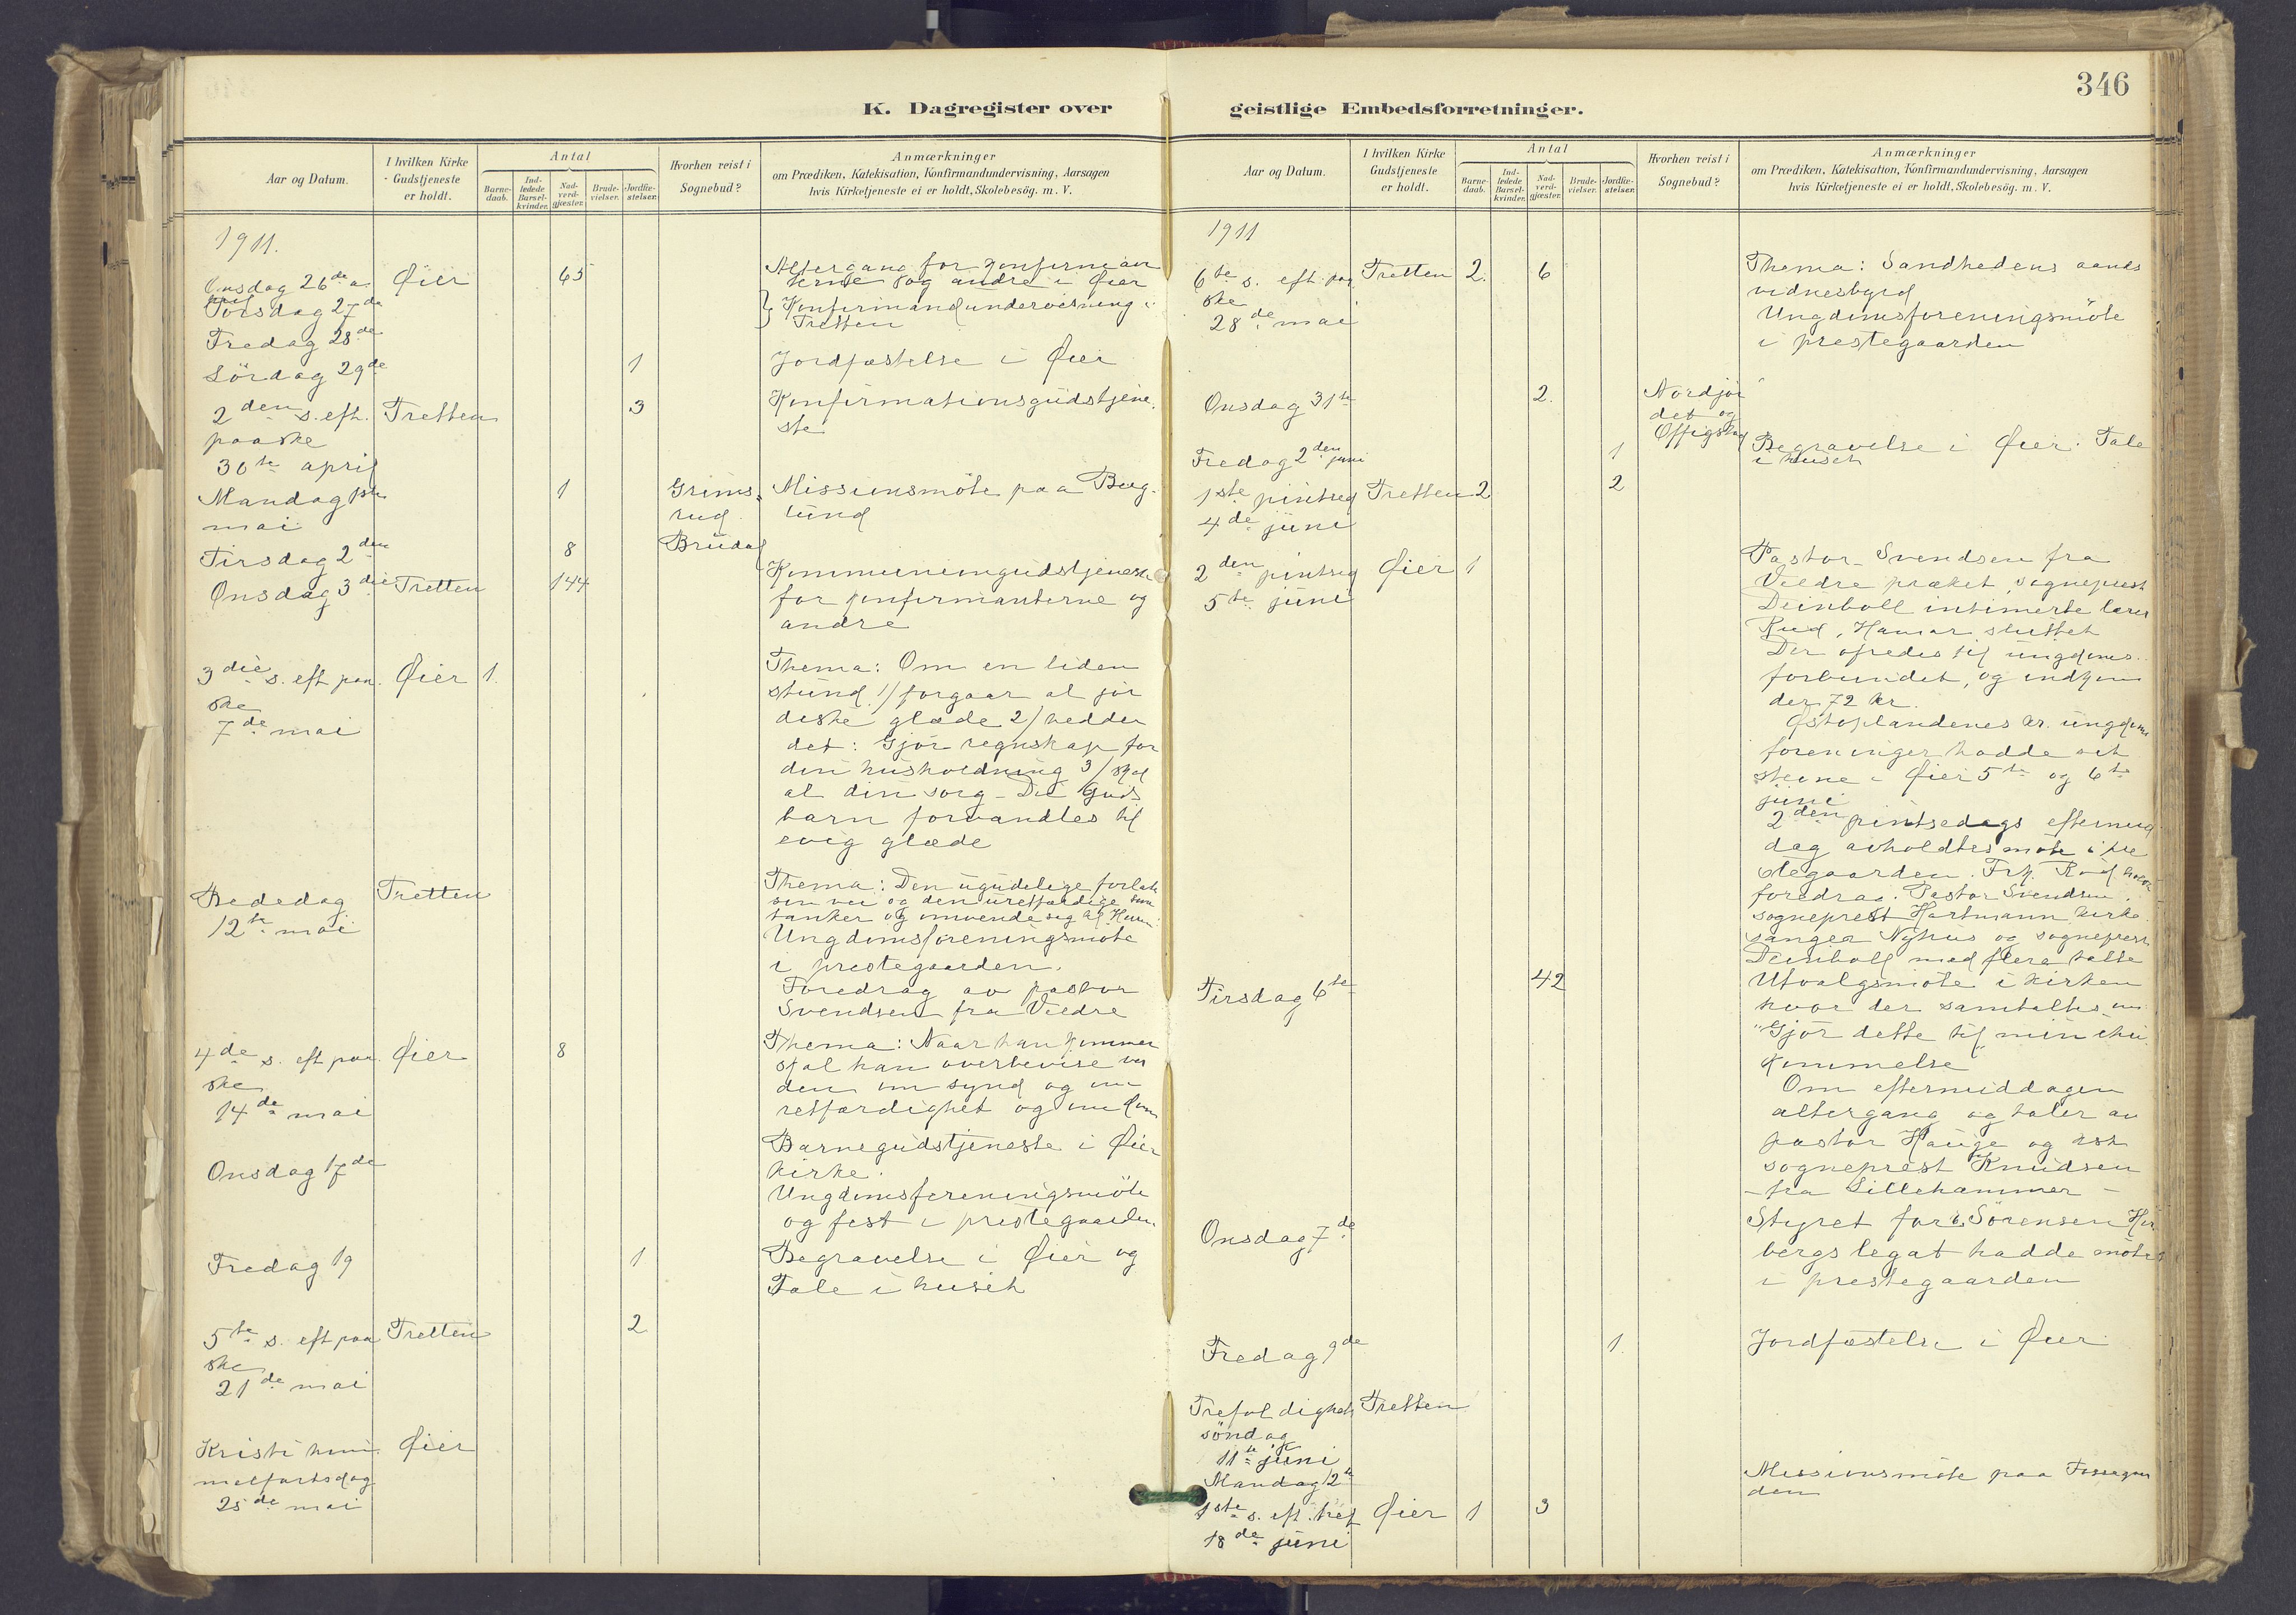 346
K. Dagregister over
geistlige Embedsforretninger.
Aar og Datum.
I hvilken Kirke
Gudstjeneste
er holdt.
Antal
Barne-
daab.
Ind-
ledede
Barsel-
kvinder.
Nad-
verd-
gjæster.
Brude-
vielser.
Jordfæ-
stelser.
Hvorhen reist i
Sognebud?
Anmærkninger
om Prædiken, Katekisation, Konfirmandundervisning, Aarsagen
hvis Kirketjeneste ei er holdt, Skolebesög. m. V.
1911.
Onsdag 26de a- Øier 65 Altergang for konfirman
pril terne og andre i Øier
Torsdag 27de } Konfirmandundervisning i
Fredag 28de Tretten
Lördag 29de 1 Jordfæstelse i Øier
2den s. eft. Tretten 3 Konfirmationsgudstjene-
paaske ste
30te april
Mandag 1ste 1 Grims- Missionsmöte paa Berg-
mai rud lund
Tirsdag 2den 8 Brudal
Onsdag 3die Tretten 144 Kommuniongudstjeneste
for konfirmanterne og
andre
3die s. eft paa- Øier 1. Thema: Om en liden
ske stund 1/ forgaar al jor
7de mai diske glæde 2/ hedder
det: Gjör regnskap for
din husholdning 3/ skal
al din sorg - Du Guds
barn forvandles til
evig glæde
Bededag Tretten Thema: Den ugudelige forlate
12te mai sin vei og den uretfærdige sine
tanker og omvende sig til Herren
Ungdomsforeningsmöte
i prestegaarden.
Foredrag av pastor
Svendsen fra Veldre
4de s. eft paa- Øier 8 Thema: Naar han kommer
ske skal han overbevise ver
14de mai den om synd og om
retfærdighet og om dom
Onsdag 17de Barnegudstjeneste i Øier
kirke.
Ungdomsforeningsmöte
og fest i prestegaarden.
Fredag 19 1 Begravelse i Øier og
Tale i huset
5te s. eft paa Tretten 2
ske
21de mai
Kristi him- Øier
melfartsdag
25de mai
Aar og Datum.
I hvilken Kirke
Gudstjeneste
er holdt.
Antal
Barne-
daab.
Ind-
ledede
Barsel-
kvinder.
Nad-
verd-
gjæster.
Brude-
vielser.
Jordfæ-
stelser.
Hvorhen reist i
Sognebud?
Anmærkninger
om Prædiken, Katekisation, Konfirmandundervisning, Aarsagen
hvis Kirketjeneste ei er holdt, Skolebesög. m. V.
1911
6te s. eft paa Tretten 2. 6 Thema: Sandhedens aands
ske vidnesbyrd
28de mai Ungdomsforeningsmöte
i prestegaarden
Onsdag 31te 2. Nordjor
det og
Fredag 2den juni 1 Begravelse i Øier. Tale
i huset
1ste pintsed Tretten 2 2
4de juni
2den pintsed Øier 1 Pastor Svendsen fra
5te juni Veldre præket, sogneprest
Deinboll intimerte lærer
Rud, Hamar sluttet
Der ofredes til ungdoms-
forbundet, og indkom
der 72 kr.
Østoplandenes kr. ungdoms
foreninger hadde sit
stevne i Øier 5te og 6te
juni
2den pintsedags eftermid
dag avholdtes möte i pre
stegaarden. Frk. Rud holdt
foredrag. Pastor Svendsen.
sogneprest Hartmann, kirke
sanger Nyhus og sogneprest
Deinboll med flere talte
Tirsdag 6te 42 Utvalgsmöte i kirken
hvor der samtaltes om
"Gjör dette til min ihu
kommelse"
Om eftermiddagen
altergang og taler av
pastor Hauge og res.
sogneprest Knudsen
- fra Lillehammer -
Onsdag 7de Styret for Sörensen Her
bergs legat hadde möte
i prestegaarden
Fredag 9de 1. Jordfæstelse i Øier
Trefoldigheds Tretten
söndag
11te juni
Mandag 12te Missionsmöte paa Fossegaar
den
1ste s. eft. tref Øier 1 3
18de juni